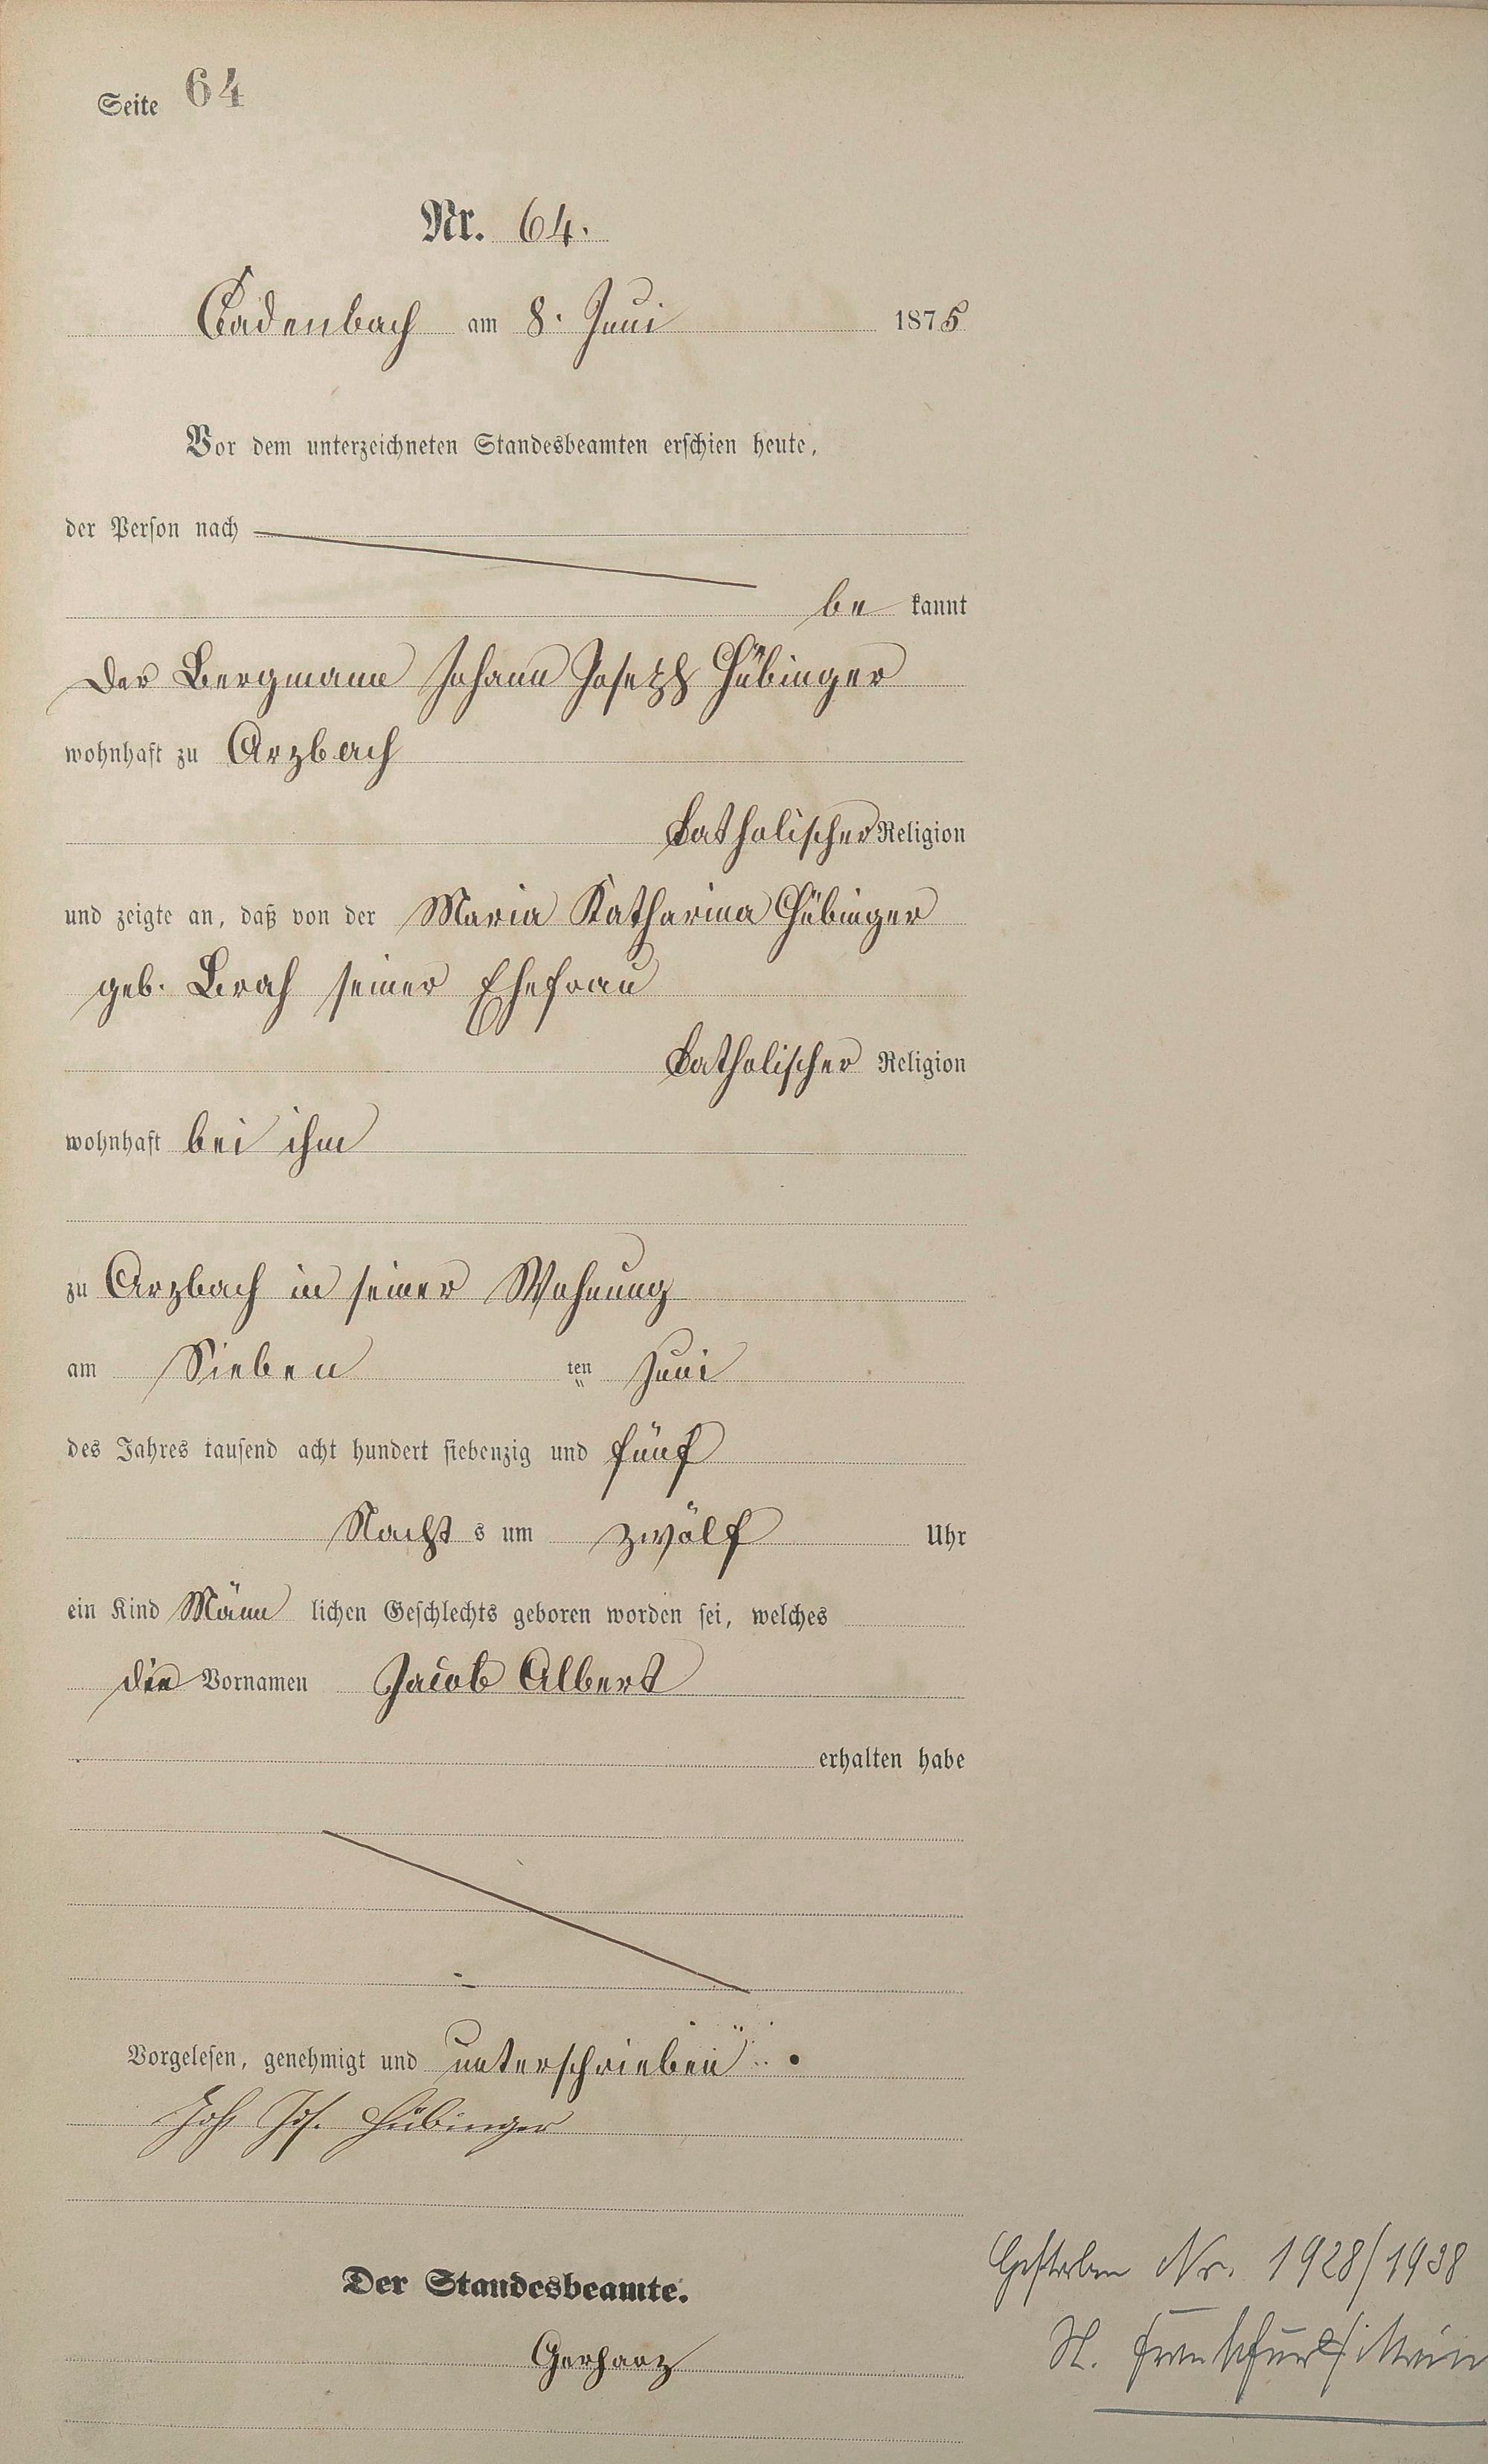 Seite 64
Nr. 64.
Cadenbach am 8. Juni 1875
Vor dem unterzeichneten Standesbeamten erschien heute,
der Person nach
be kannt
Der Bergmann Johann Joseph Hübinger
wohnhaft zu Arzbach
katholischer Religion
und zeigte an, daß von der Maria Katharina Hübinger
geb. Brah seiner Ehefrau
katholischer Religion
wohnhaft bei ihm
zu Arzbach in seiner Wohnung
am Sieben ten Juni
des Jahres tausend acht hundert siebenzig und fünf
Nacht s um zwölf Uhr
ein Kind Männ lichen Geschlechts geboren worden sei, welches
die Vornamen Jacob Albert
erhalten habe
Vorgelesen, genehmigt und unterschrieben
Joh Jos. Hübinger
Der Standesbeamte.
Gerharz
Gestorben Nr. 1928/1938
St. Frankfurt/Main